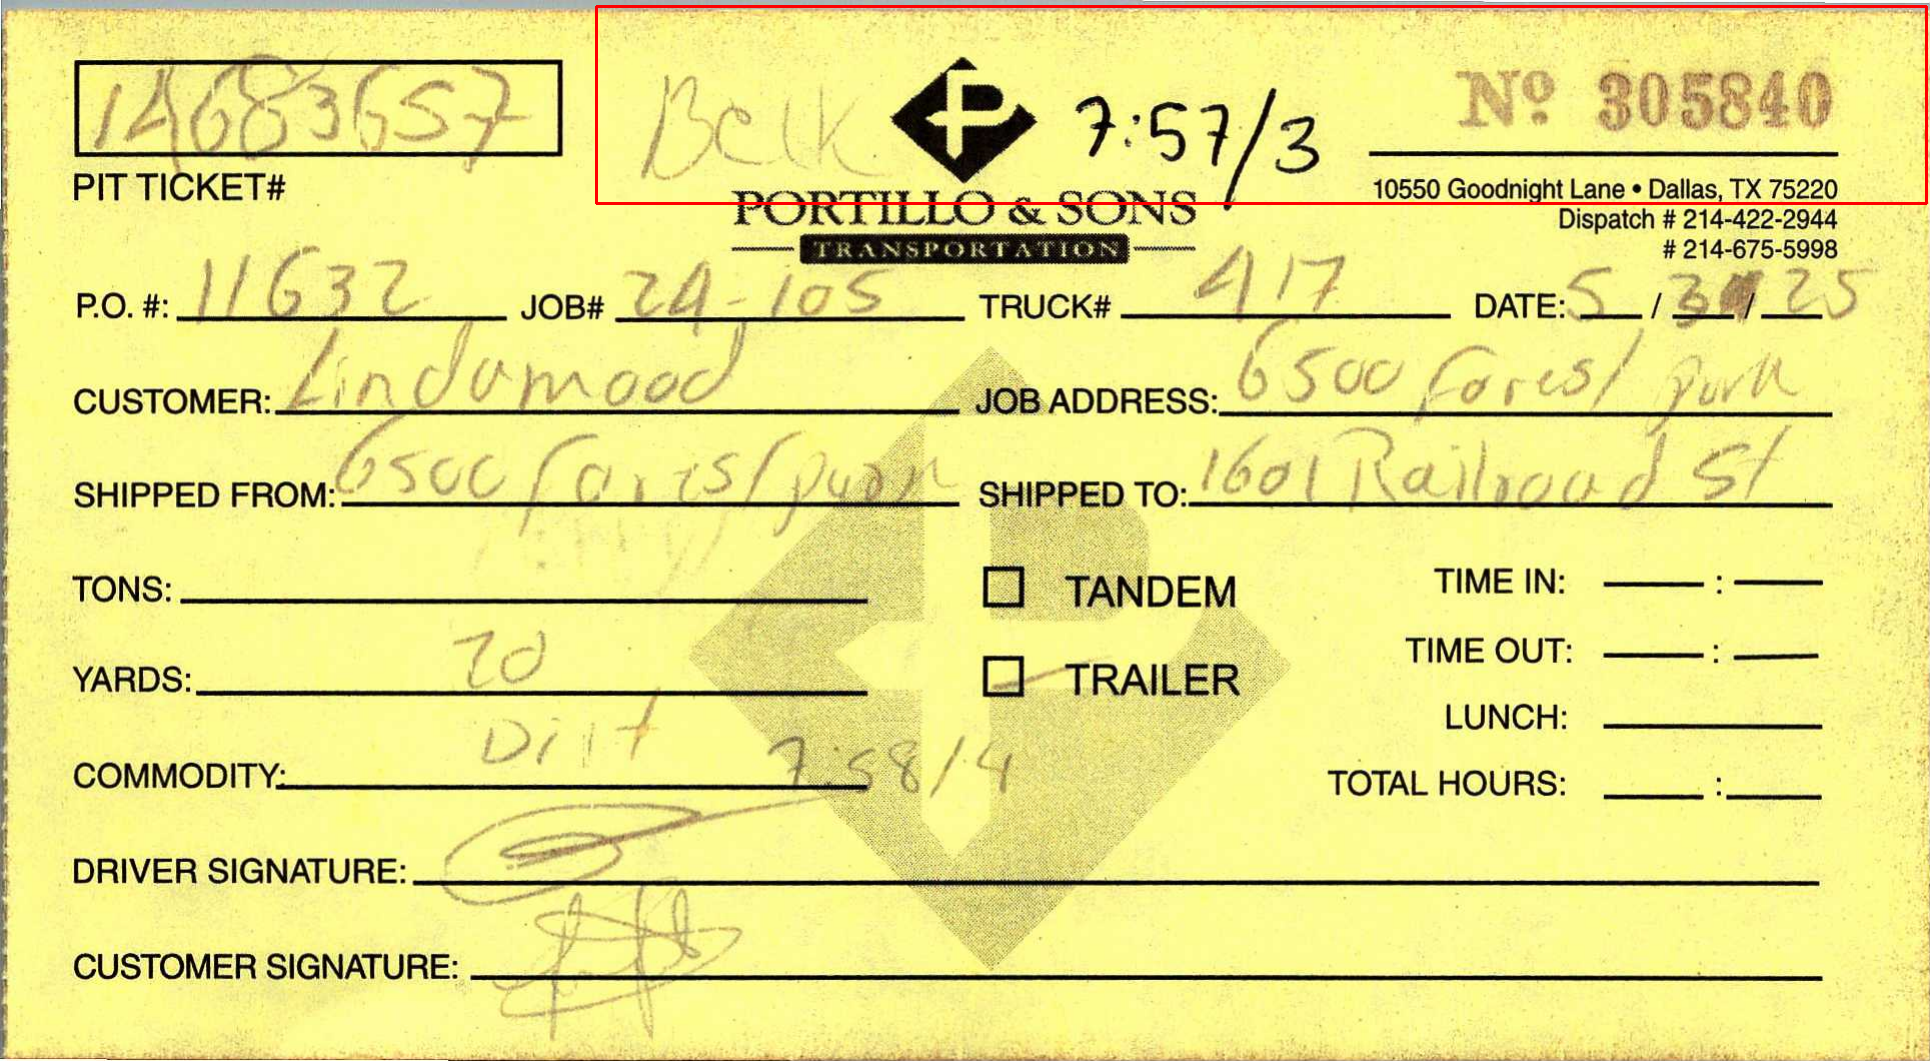 14683657
Belk 7:57/3 Nº 305840
PIT TICKET#
PORTILLO & SONS
TRANSPORTATION
10550 Goodnight Lane • Dallas, TX 75220
Dispatch # 214-422-2944
# 214-675-5998
P.O. #: 11632 JOB# 24-105 TRUCK# 417 DATE: 5 / 3 / 25
CUSTOMER: Lindamood JOB ADDRESS: 6500 forest park
SHIPPED FROM: 6500 forest park SHIPPED TO: 1601 Railroad St
TONS: TANDEM TIME IN: :
YARDS: 20 TRAILER TIME OUT: :
LUNCH:
COMMODITY: Dirt 7:58/4 TOTAL HOURS: :
DRIVER SIGNATURE:
CUSTOMER SIGNATURE: